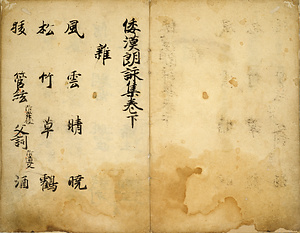 倭漢朗詠集巻下
雜
風 雲 晴 暁
松 竹 草 鶴
猿 管絃 文詞 酒